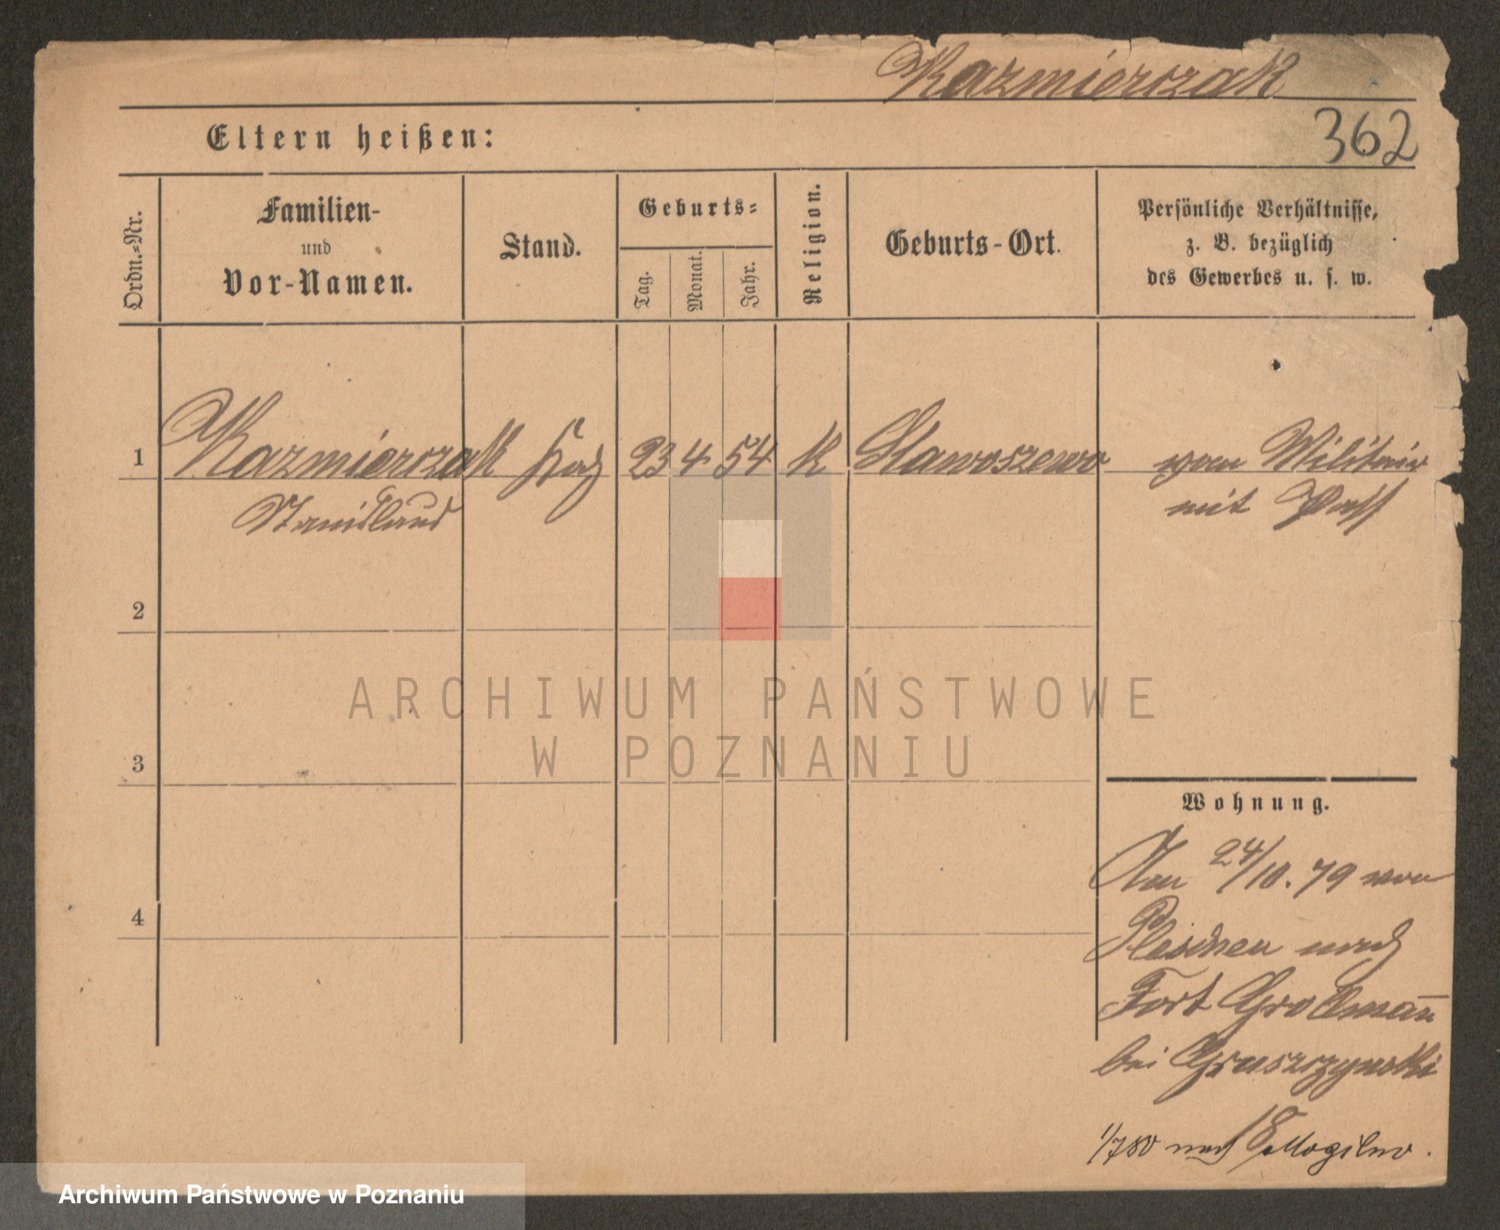 Kazmierczak
362
Eltern heißen:
Ordn.-Nr.
Familien-
und
Vor-Namen.
Stand.
Geburts-
Tag.
Monat.
Jahr.
Religion.
Geburts-Ort.
Persönliche Verhältnisse,
z. B. bezüglich
des Gewerbes u. s. w.
1 Kazmierczak 23 4 54 K Slawoszewo vom Militair
Stanislaus mit Paß
2
3
4
Wohnung.
Am 24/10. 79 von
Pleschen nach
Fort Grollman̅
bei Gruszczynski
1/7 80 nach Mogilno.
ARCHIWUM PAŃSTWOWE
W POZNANIU
Archiwum Państwowe w Poznaniu